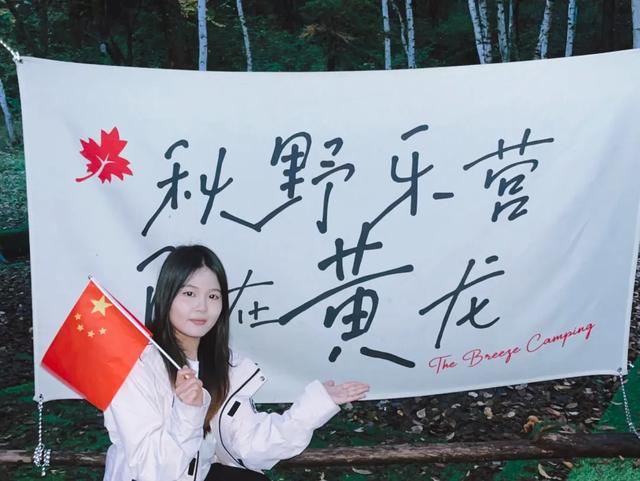 秋野乐营
在黄龙
The Breeze Camping